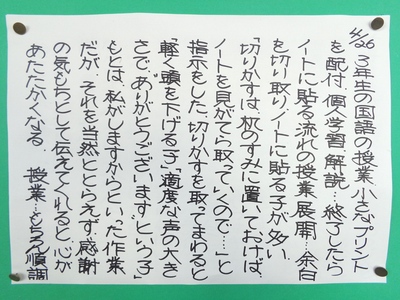 4/26 3年生の国語の授業、小さなプリント
を配付、個人学習、解説…終了したら
ノートに貼る流れの授業展開…余白
を切り取り、ノートに貼る子が多い
「切りかすは、机のすみに置いておけば、
ノートを見がてら取っていくので…」と
指示をした。切りかすを取ってまわると
「軽く頭を下げる子」「適度な声の大き
さで、ありがとうございますという子」
もとは、私がしますからといった作業
だが、それを当然ととらえず、感謝
の気もちとして伝えてくれると心が
あたたかくなる 授業…もちろん順調